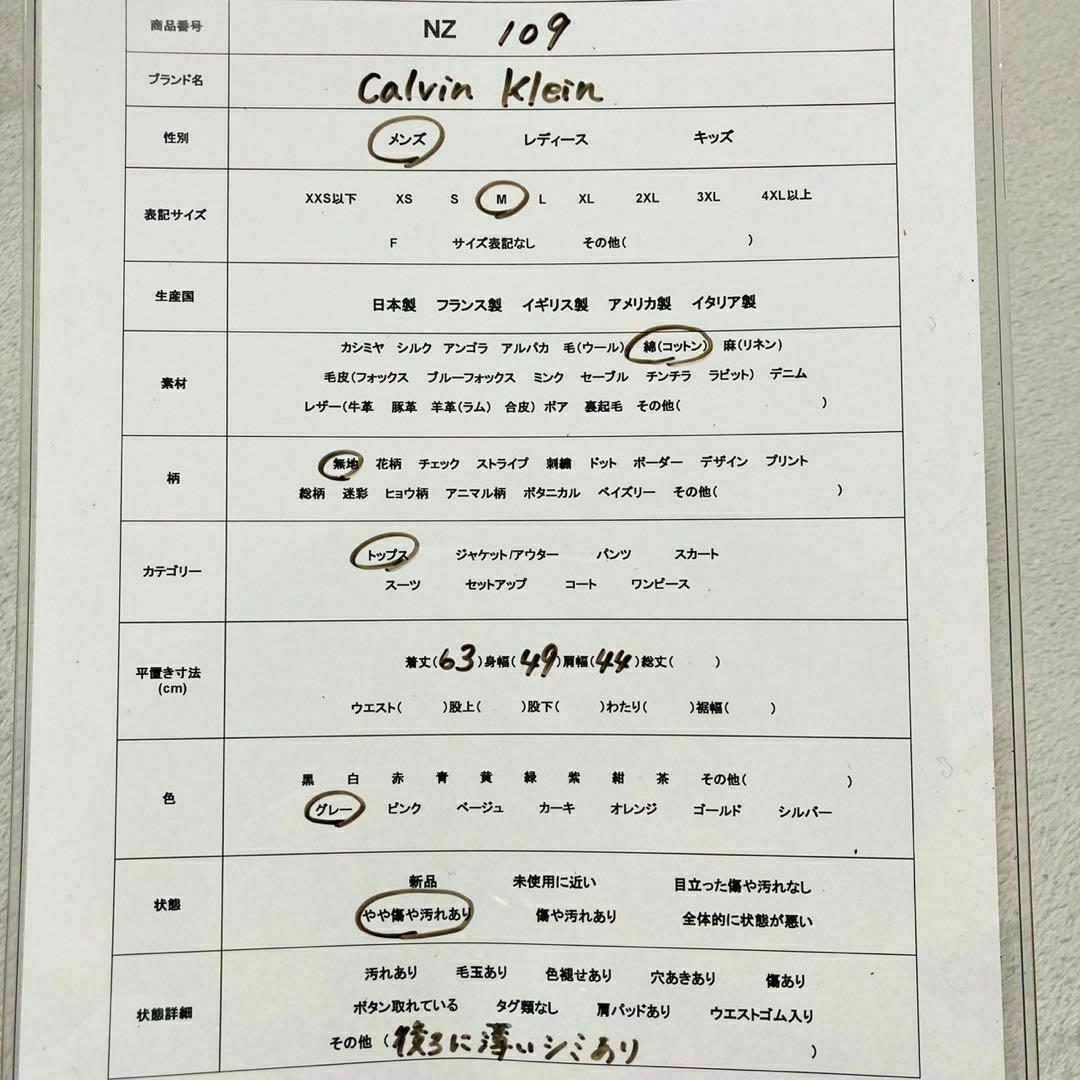 商品番号 NZ 109
ブランド名 Calvin Klein
性別 メンズ レディース キッズ
表記サイズ XXS以下 XS S M L XL 2XL 3XL 4XL以上
F サイズ表記なし その他( )
生産国 日本製 フランス製 イギリス製 アメリカ製 イタリア製
カシミヤ シルク アンゴラ アルパカ 毛(ウール) 綿(コットン) 麻(リネン)
素材 毛皮(フォックス ブルーフォックス ミンク セーブル チンチラ ラビット) デニム
レザー(牛革 豚革 羊革(ラム) 合皮) ボア 裏起毛 その他( )
無地 花柄 チェック ストライプ 刺繍 ドット ボーダー デザイン プリント
柄
総柄 迷彩 ヒョウ柄 アニマル柄 ボタニカル ペイズリー その他( )
トップス ジャケット/アウター パンツ スカート
カテゴリー
スーツ セットアップ コート ワンピース
平置き寸法 着丈(63)身幅(49)肩幅(44)総丈( )
(cm) ウエスト( )股上( )股下( )わたり( )裾幅( )
黒 白 赤 青 黄 緑 紫 紺 茶 その他( )
色
グレー ピンク ベージュ カーキ オレンジ ゴールド シルバー
新品 未使用に近い 目立った傷や汚れなし
状態
やや傷や汚れあり 傷や汚れあり 全体的に状態が悪い
汚れあり 毛玉あり 色褪せあり 穴あきあり 傷あり
状態詳細 ボタン取れている タグ類なし 肩パッドあり ウエストゴム入り
その他 (後ろに薄いシミあり )